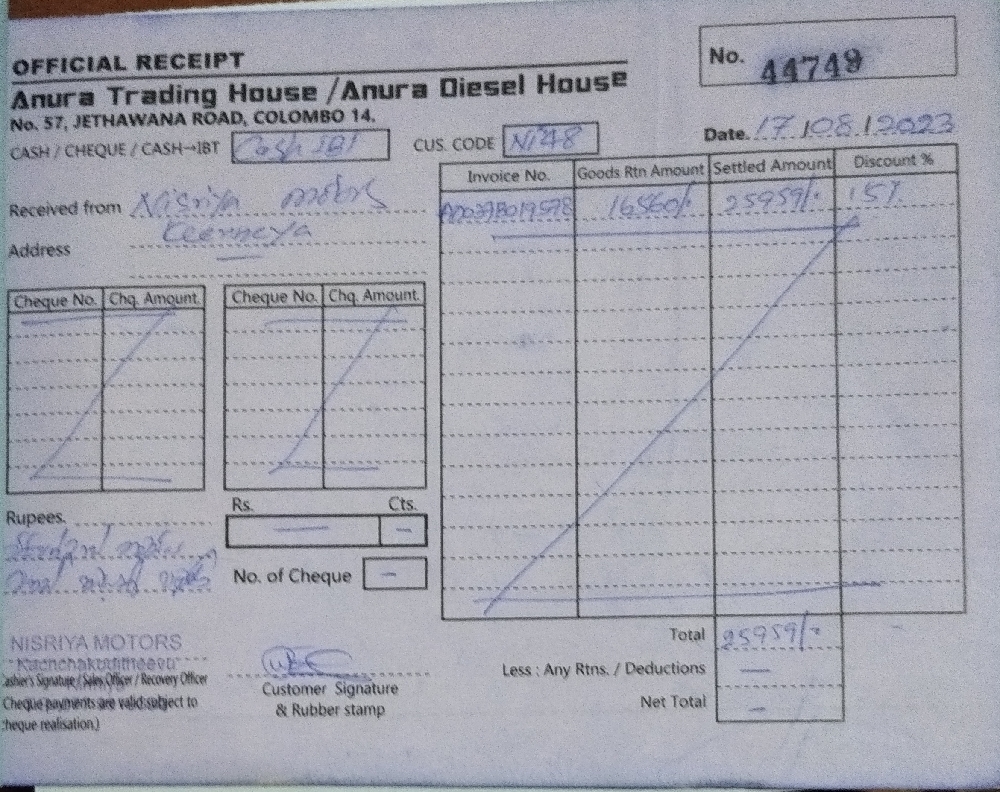 OFFICIAL RECEIPT
No. 44749
Anura Trading House / Anura Diesel House
No. 57, JETHAWANA ROAD, COLOMBO 14.
Date. 17/08/2023
CASH / CHEQUE / CASH→IBT Cash IBT
CUS. CODE Ni48
Invoice No. Goods Rtn Amount Settled Amount Discount %
16560/- 25959/- 15%
Received from Nisriya motors
Address
Cheque No. Chq. Amount. Cheque No. Chq. Amount.
Rs. Cts.
Rupees.
No. of Cheque
Total 25959/-
Less : Any Rtns. / Deductions
Net Total
NISRIYA MOTORS
ashier's Signature / Sales Officer / Recovery Officer
Customer Signature
& Rubber stamp
Cheque payments are valid subject to
heque realisation.)